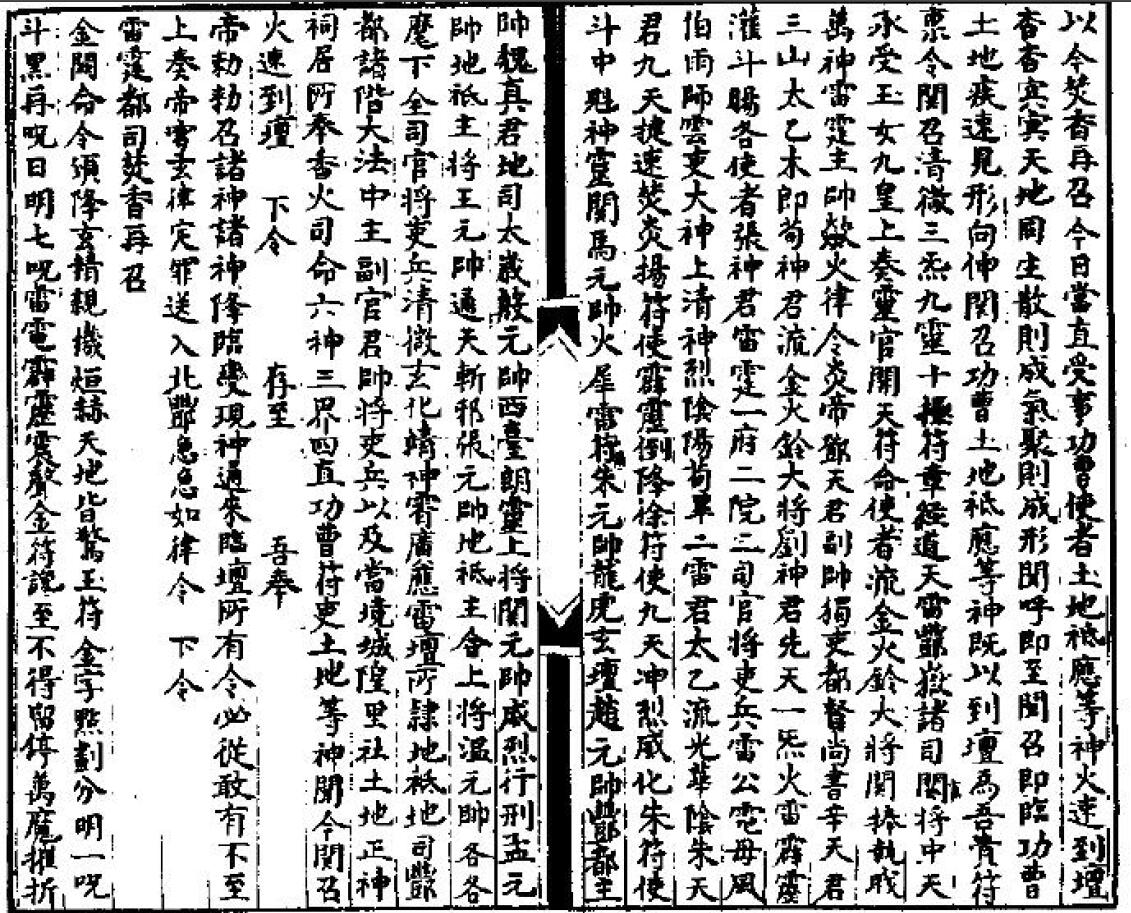 以今焚香再召今日當直受事功曹使者土地祗應等神火速到壇
杳杳㝠㝠天地同生散則成氣聚則成形聞呼即至聞召即臨功曹
土地疾速見形向伸関召功曹土地祗應等神既以到壇為吾賫符
禀令関召清微三炁九靈十極符章經道天雷酆嶽諸司関將中天
永受玉女九皇上奏靈官開天符命使者流金火鈴大將関捧執戌
萬神雷霆主帥欻火律令炎帝鄧天君副帥獨吏都督尚書辛天君
三山太乙木郎荀神君流金火鈴大將劉神君先天一炁火雷霹靂
灌斗賜各使者張神君雷霆一府二院三司官將吏兵雷公電母風
伯雨師雲吏大神上清神烈陰陽荀畢二雷君太乙流光華陰朱天
君九天捷速焚炎揚符使霹靂倒降徐符使九天冲烈威化朱符使
斗中魁神靈関馬元帥火犀雷符朱元帥龍虎玄壇趙元帥酆都主
帥魏真君地司太歲殷元帥西臺朗靈上將関元帥威烈行刑孟元
帥地祇主將王元帥通天斬邪張元帥地祇主令上將溫元帥各各
麾下全司官將吏兵清微玄化靖神霄廣應雷壇所隷地祇地司酆
都諸階大法中主副官君帥將吏兵以及當境城隍里社土地正神
祠居所奉香火司命六神三界四直功曹符吏土地等神聞今関召
火速到壇 下令 存至 吾奉
帝勅勅召諸神諸神降臨變現神通來臨壇所有令必從敢有不至
上奏帝霄玄律定罪送入北酆急急如律令 下令
雷霆都司焚香再召
金闕命令頒降玄精親機烜赫天地皆驚玉符金字點劃分明一呪
斗黑再呪日明七呪雷電霹靂震聲金符謹至不得留停萬魔摧折